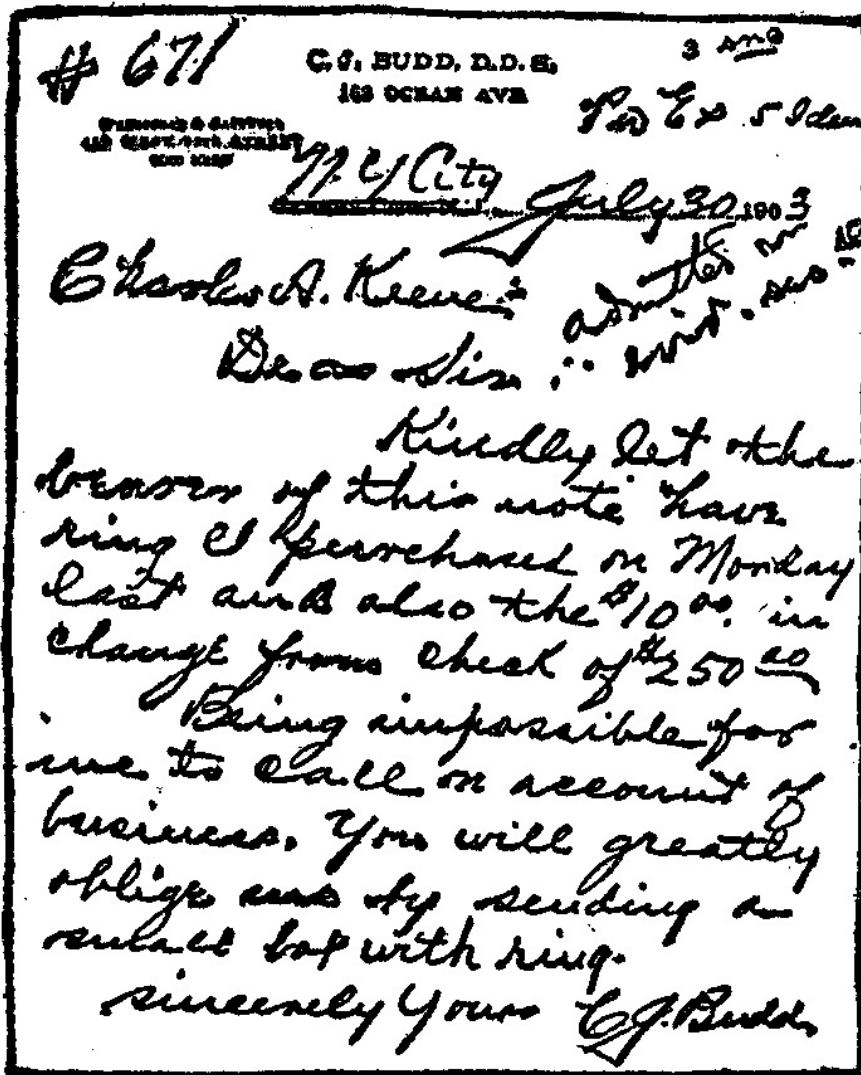 # 671
C. J. BUDD, D.D.S.
162 OCEAN AVE
N. Y. City July 30 1903
Charles A. Keene:
Dear Sir:
Kindly let the
bearer of this note have
ring I purchased on Monday
last and also the $10 00. in
change from check of $250 00
Being impossible for
me to call on account of
business. You will greatly
oblige me by sending a
small box with ring.
Sincerely Yours C. J. Budd.